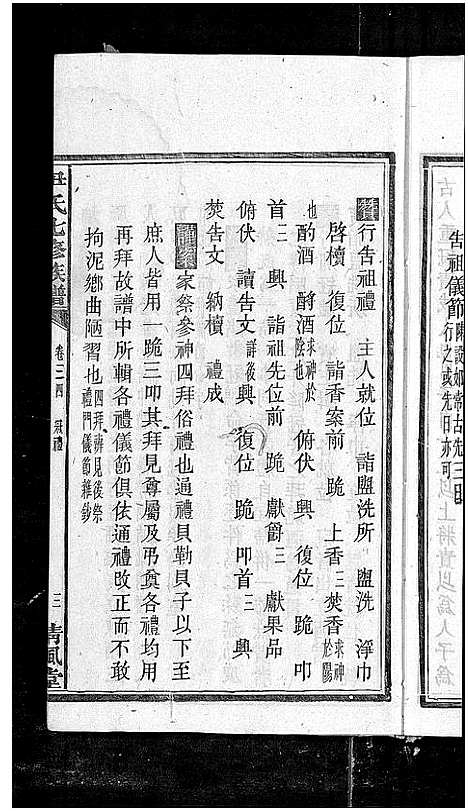 告祖儀節
行之或先旧亦可
贊行告祖禮　主人就位　詣盥洗所　盥洗　淨巾
啓櫝　復位　詣香案前　跪　上香三焚香求神於陽
也　酌酒　酹酒求神於陰也　俯伏　興　復位　跪　叩
首三　興　詣祖先位前　跪　獻爵三　獻果品
俯伏　讀告文詳後　興　復位　跪　叩首三　興
焚告文　納櫝　禮成
家祭參神四拜俗禮也通禮貝勒貝子以下至
庶人皆用一跪三叩其拜見尊屬及弔奠各禮均用
再拜故譜中所輯各禮儀節俱依通禮改正而不敢
拘泥鄉曲陋習也四拜辨見後祭禮門儀節雜鈔
尹氏七修族譜　卷三四　冠禮　三　清風堂